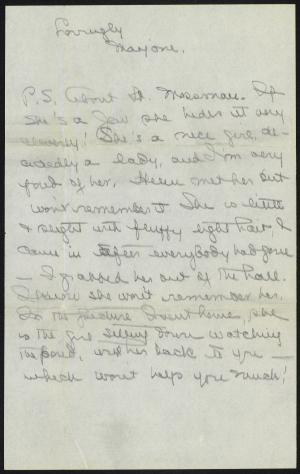 Lovingly
Marjorie.
P.S. About Lt. Mossman. If
she's a Jew she hides it very
cleverly! She's a nice girl, de-
cidedly a lady, and I'm very
fond of her. Helen met her but
won't remember it. She is little
& slight with fluffy light hair, &
came in after everybody had gone
— I grabbed her out of the hall.
I know she won't remember her.
In the picture I sent home, she
is the girl sitting down watching
the , with her back to you —
which won't help you much!